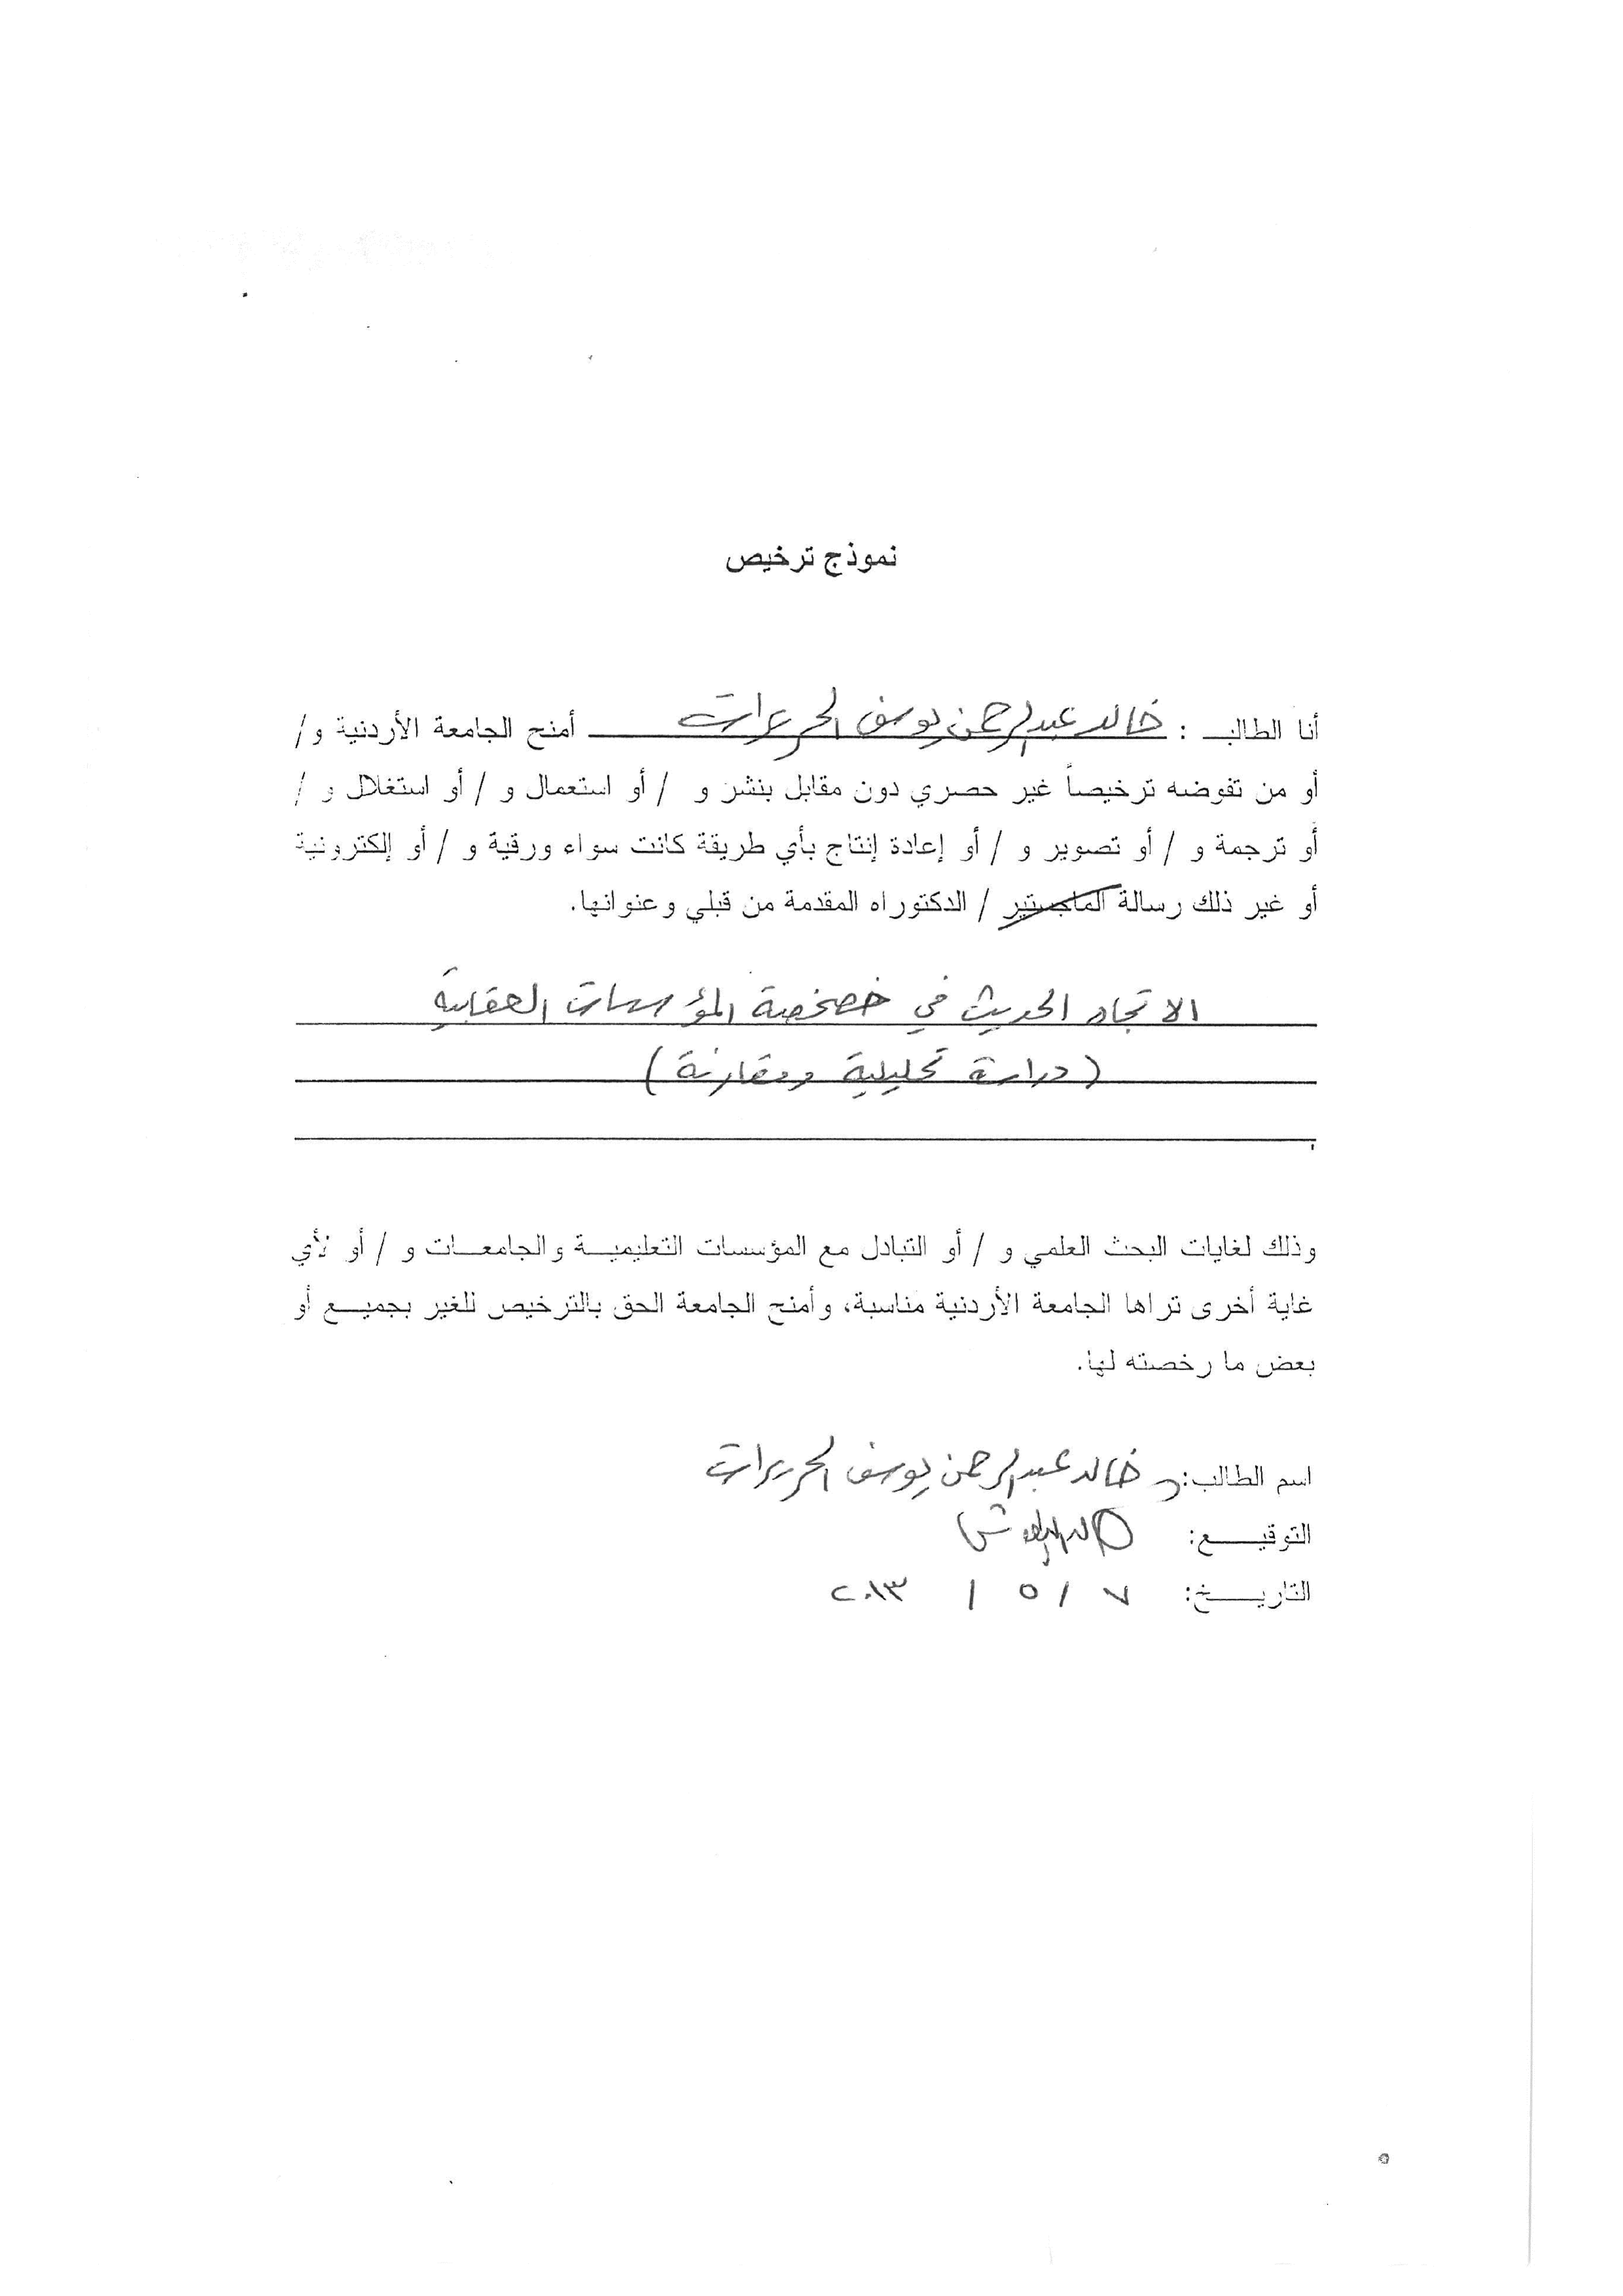 نموذج ترخيص
أنا الطالب : خالد عبدالرحمن يوسف الحريرات أمنح الجامعة الأردنية و/
أو من تفوضه ترخيصاً غير حصري دون مقابل بنشر و / أو استعمال و / أو استغلال و /
أو ترجمة و / أو تصوير و / أو إعادة إنتاج بأي طريقة كانت سواء ورقية و / أو إلكترونية
أو غير ذلك رسالة الماجستير / الدكتوراه المقدمة من قبلي وعنوانها.
الاتجاه الحديث في خصخصة المؤسسات العقابية
(دراسة تحليلية ومقارنة)
وذلك لغايات البحث العلمي و / أو التبادل مع المؤسسات التعليمية والجامعات و / أو لأي
غاية أخرى تراها الجامعة الأردنية مناسبة، وأمنح الجامعة الحق بالترخيص للغير بجميع أو
بعض ما رخصته لها.
اسم الطالب: خالد عبدالرحمن يوسف الحريرات
التوقيع:
التاريخ: ٧ / ٥ / ٢٠١٣